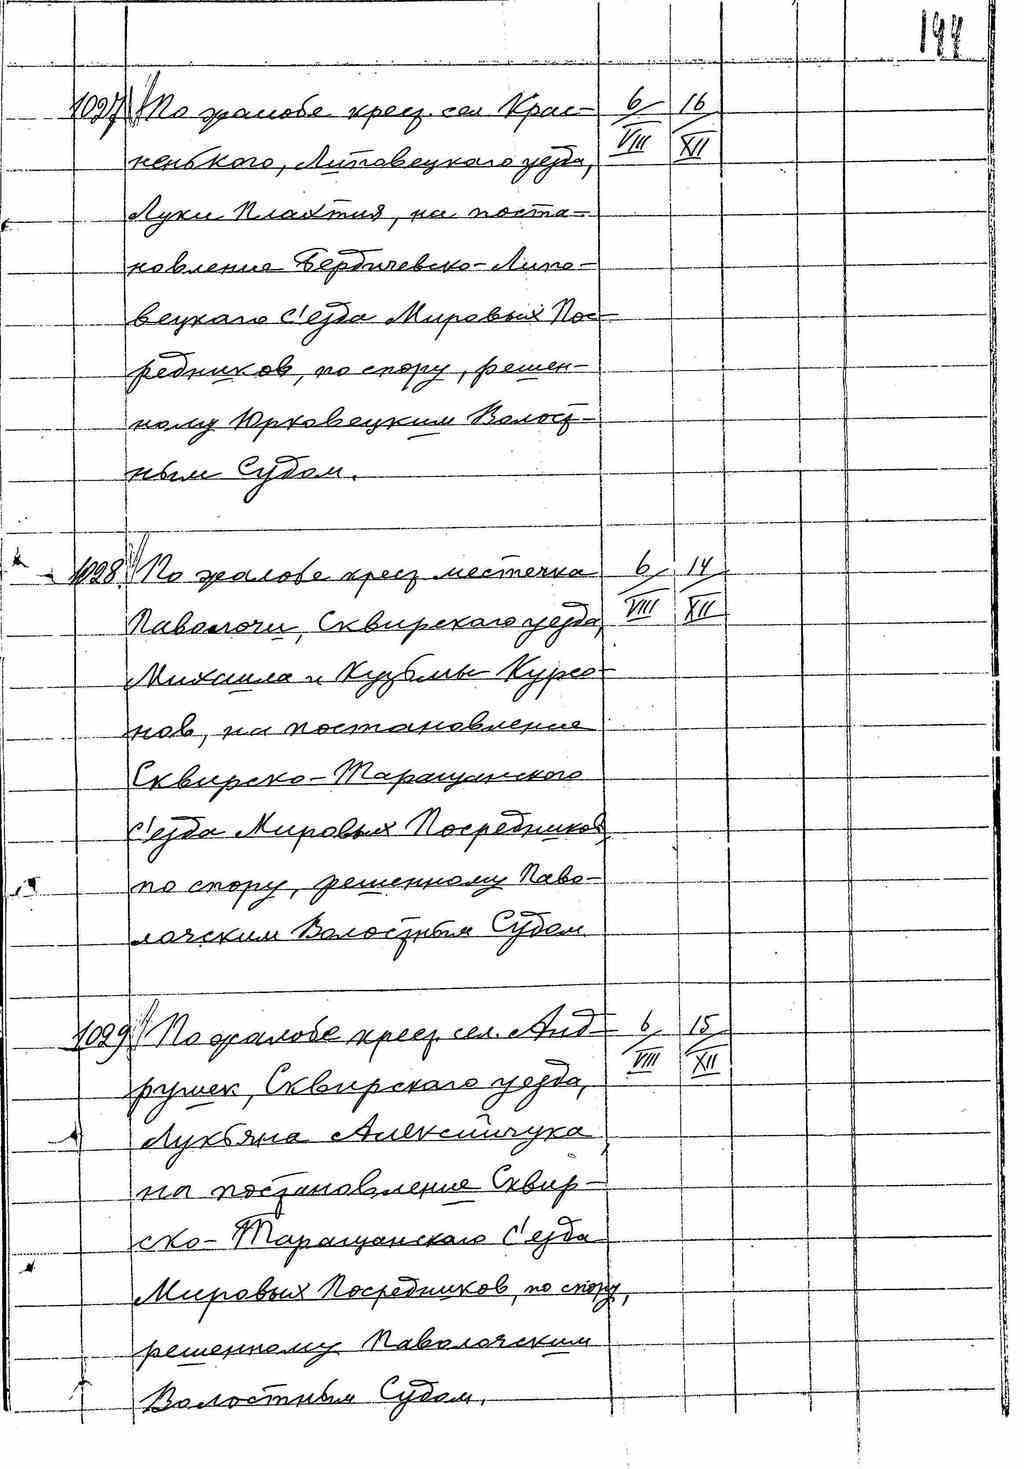 144
1027 По жалобе крест. сел. Крас- 6/VIII 16/XII
ненького, Липовецкаго уезда,
Луки Плахтия, на поста-
новление Бердичевско-Липо-
вецкаго с'езда Мировых Пос-
редников, по спору, решен-
ному Юрковецким Волост-
ным Судом.
1028. По жалобе крест. местечка 6/VIII 14/XII
Паволочи, Сквирскаго уезда,
Михаила и Кузьмы Курсо-
нов, на постановление
Сквирско-Таращанского
с'езда Мировых Посредников,
по спору, решенному Паво-
лочским Волостным Судом
1029 По жалобе крест. сел. Анд- 6/VIII 15/XII
рушек, Сквирскаго уезда,
Лукьяна Алексийчука,
на постановление Сквир-
ско-Таращанскаго с'езда
Мировых Посредников, по спору,
решенному Паволочским
Волостным Судом.